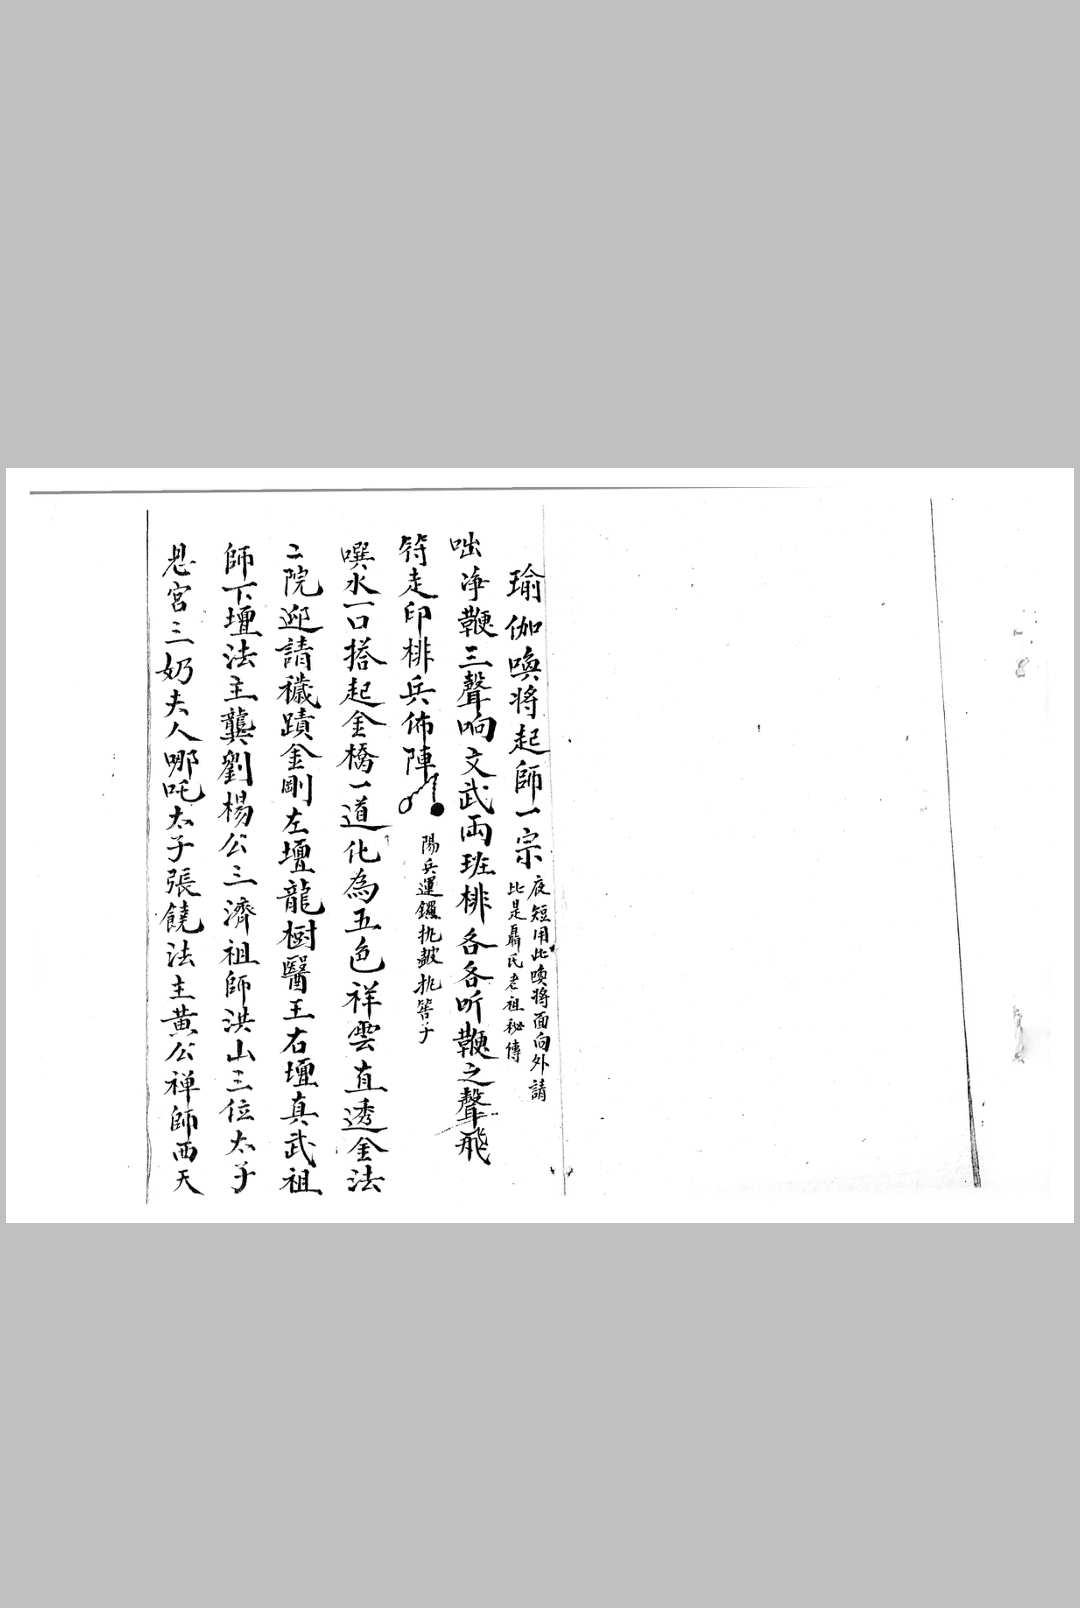 瑜伽喚將起師一宗
夜短用此喚將面向外請
此是聶氏老祖秘傳
咄淨鞭三聲响文武両班排各各听鞭之聲飛
符走印排兵佈陣
陽兵運鑼扰皷扰筶子
噀水一口搭起金橋一道化為五色祥雲直透金法
二院迎請穢蹟金剛左壇龍樹醫王右壇真武祖
師下壇法主龔劉楊公三濟祖師洪山三位太子
恩宮三奶夫人哪吒太子張饒法主黃公禅師西天